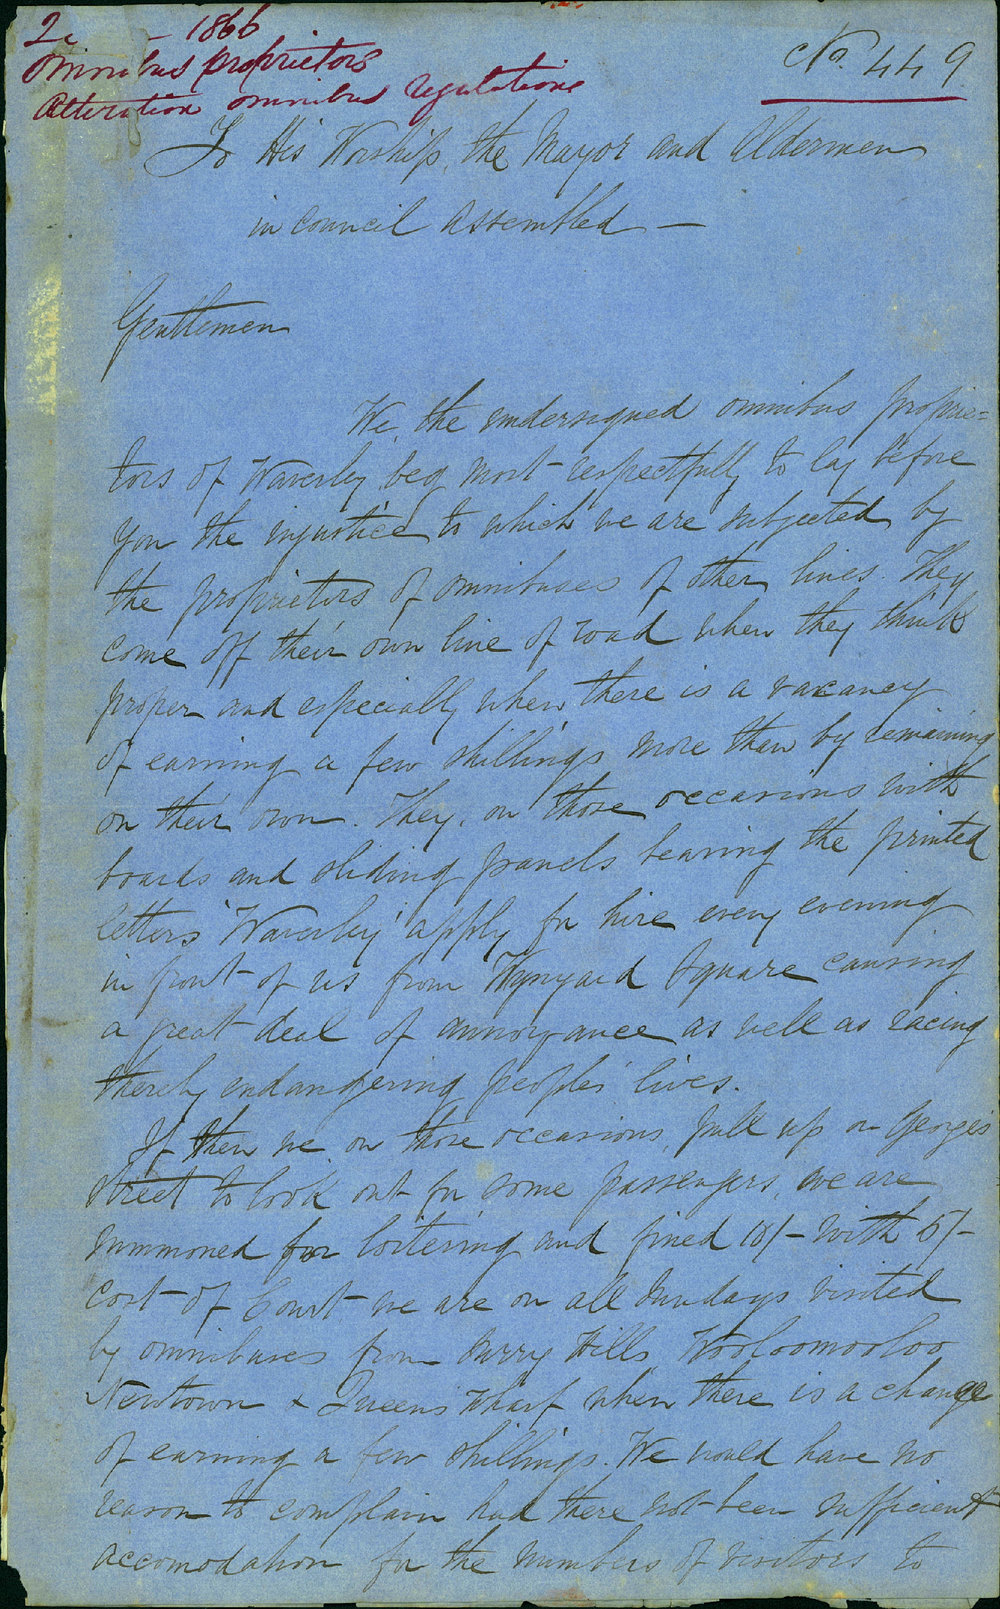 1866
Omnibus proprietors
Alteration omnibus regulations
No. 449
To His Worship, the Mayor and Aldermen
in Council Assembled —
Gentlemen
We, the undersigned omnibus proprie=
tors of Waverley beg most respectfully to lay before
you the injustice to which we are subjected by
the proprietors of omnibuses of other lines. They
come off their own line of road when they think
proper and especially when there is a vacancy
of earning a few shillings more than by remaining
on their own. They, on those occasions with
boards and sliding panels bearing the printed
letters 'Waverley' apply for hire every evening
in front of us from Wynyard Square causing
a great deal of annoyance as well as racing
thereby endangering peoples' lives.
If then we on those occasions pull up on George's
Street to look out for some passengers, we are
summoned for loitering and fined 10/- with 5/-
cost of Court we are on all Sundays visited
by omnibuses from Surry Hills, Wooloomooloo
Newtown & Queens Wharf when there is a change
of earning a few shillings. We would have no
reason to complain had there not been sufficient
accomodation for the numbers of visitors to